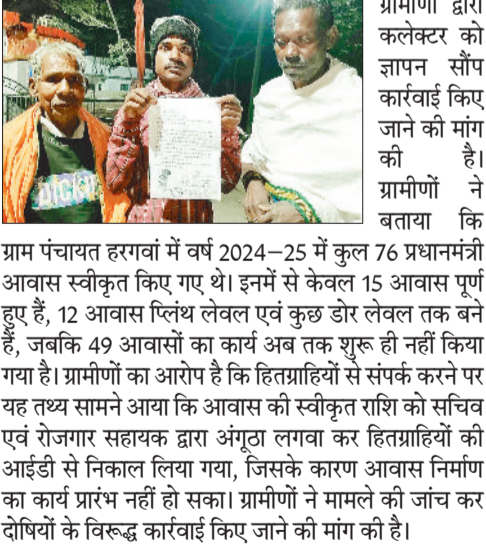 ग्रामीणों द्वारा
कलेक्टर को
ज्ञापन सौंप
कार्रवाई किए
जाने की मांग
की है।
ग्रामीणों ने
बताया कि
ग्राम पंचायत हरगवां में वर्ष 2024–25 में कुल 76 प्रधानमंत्री
आवास स्वीकृत किए गए थे। इनमें से केवल 15 आवास पूर्ण
हुए हैं, 12 आवास प्लिंथ लेवल एवं कुछ डोर लेवल तक बने
हैं, जबकि 49 आवासों का कार्य अब तक शुरू ही नहीं किया
गया है। ग्रामीणों का आरोप है कि हितग्राहियों से संपर्क करने पर
यह तथ्य सामने आया कि आवास की स्वीकृत राशि को सचिव
एवं रोजगार सहायक द्वारा अंगूठा लगवा कर हितग्राहियों की
आईडी से निकाल लिया गया, जिसके कारण आवास निर्माण
का कार्य प्रारंभ नहीं हो सका। ग्रामीणों ने मामले की जांच कर
दोषियों के विरूद्ध कार्रवाई किए जाने की मांग की है।